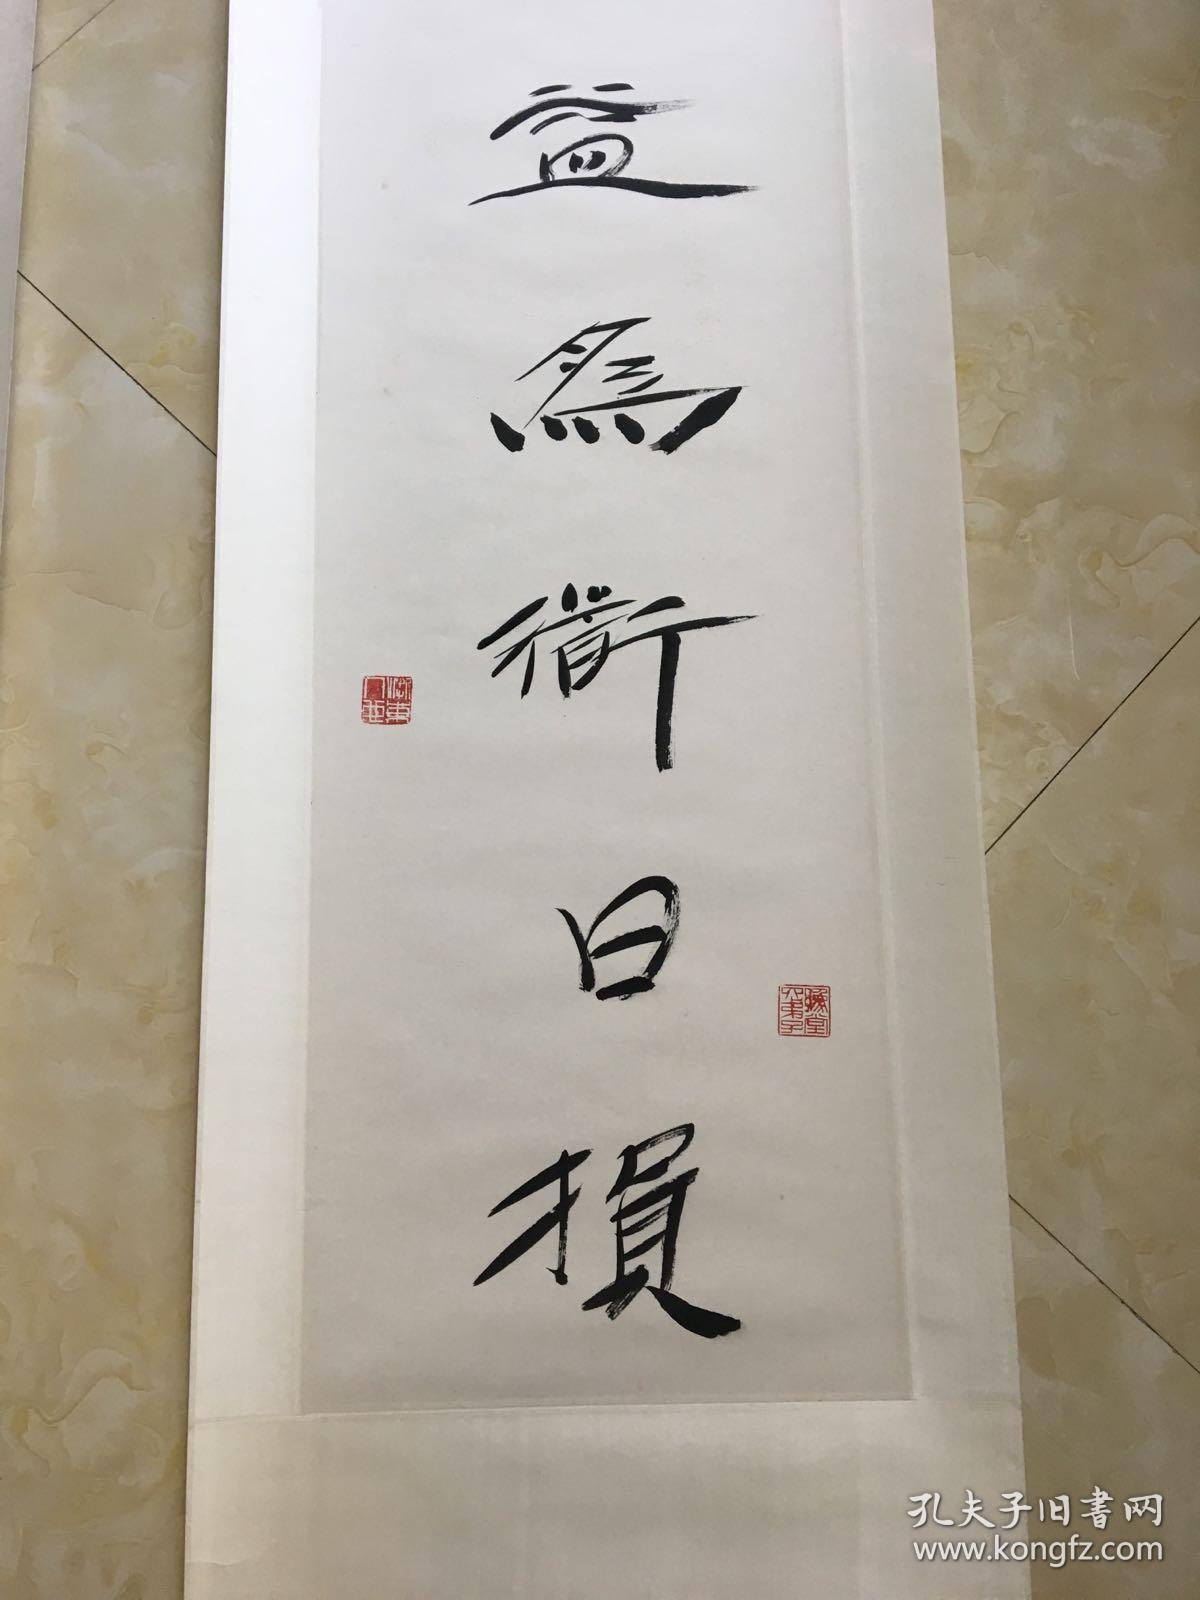 益爲衜日損
孔夫子旧書网
www.kongfz.com